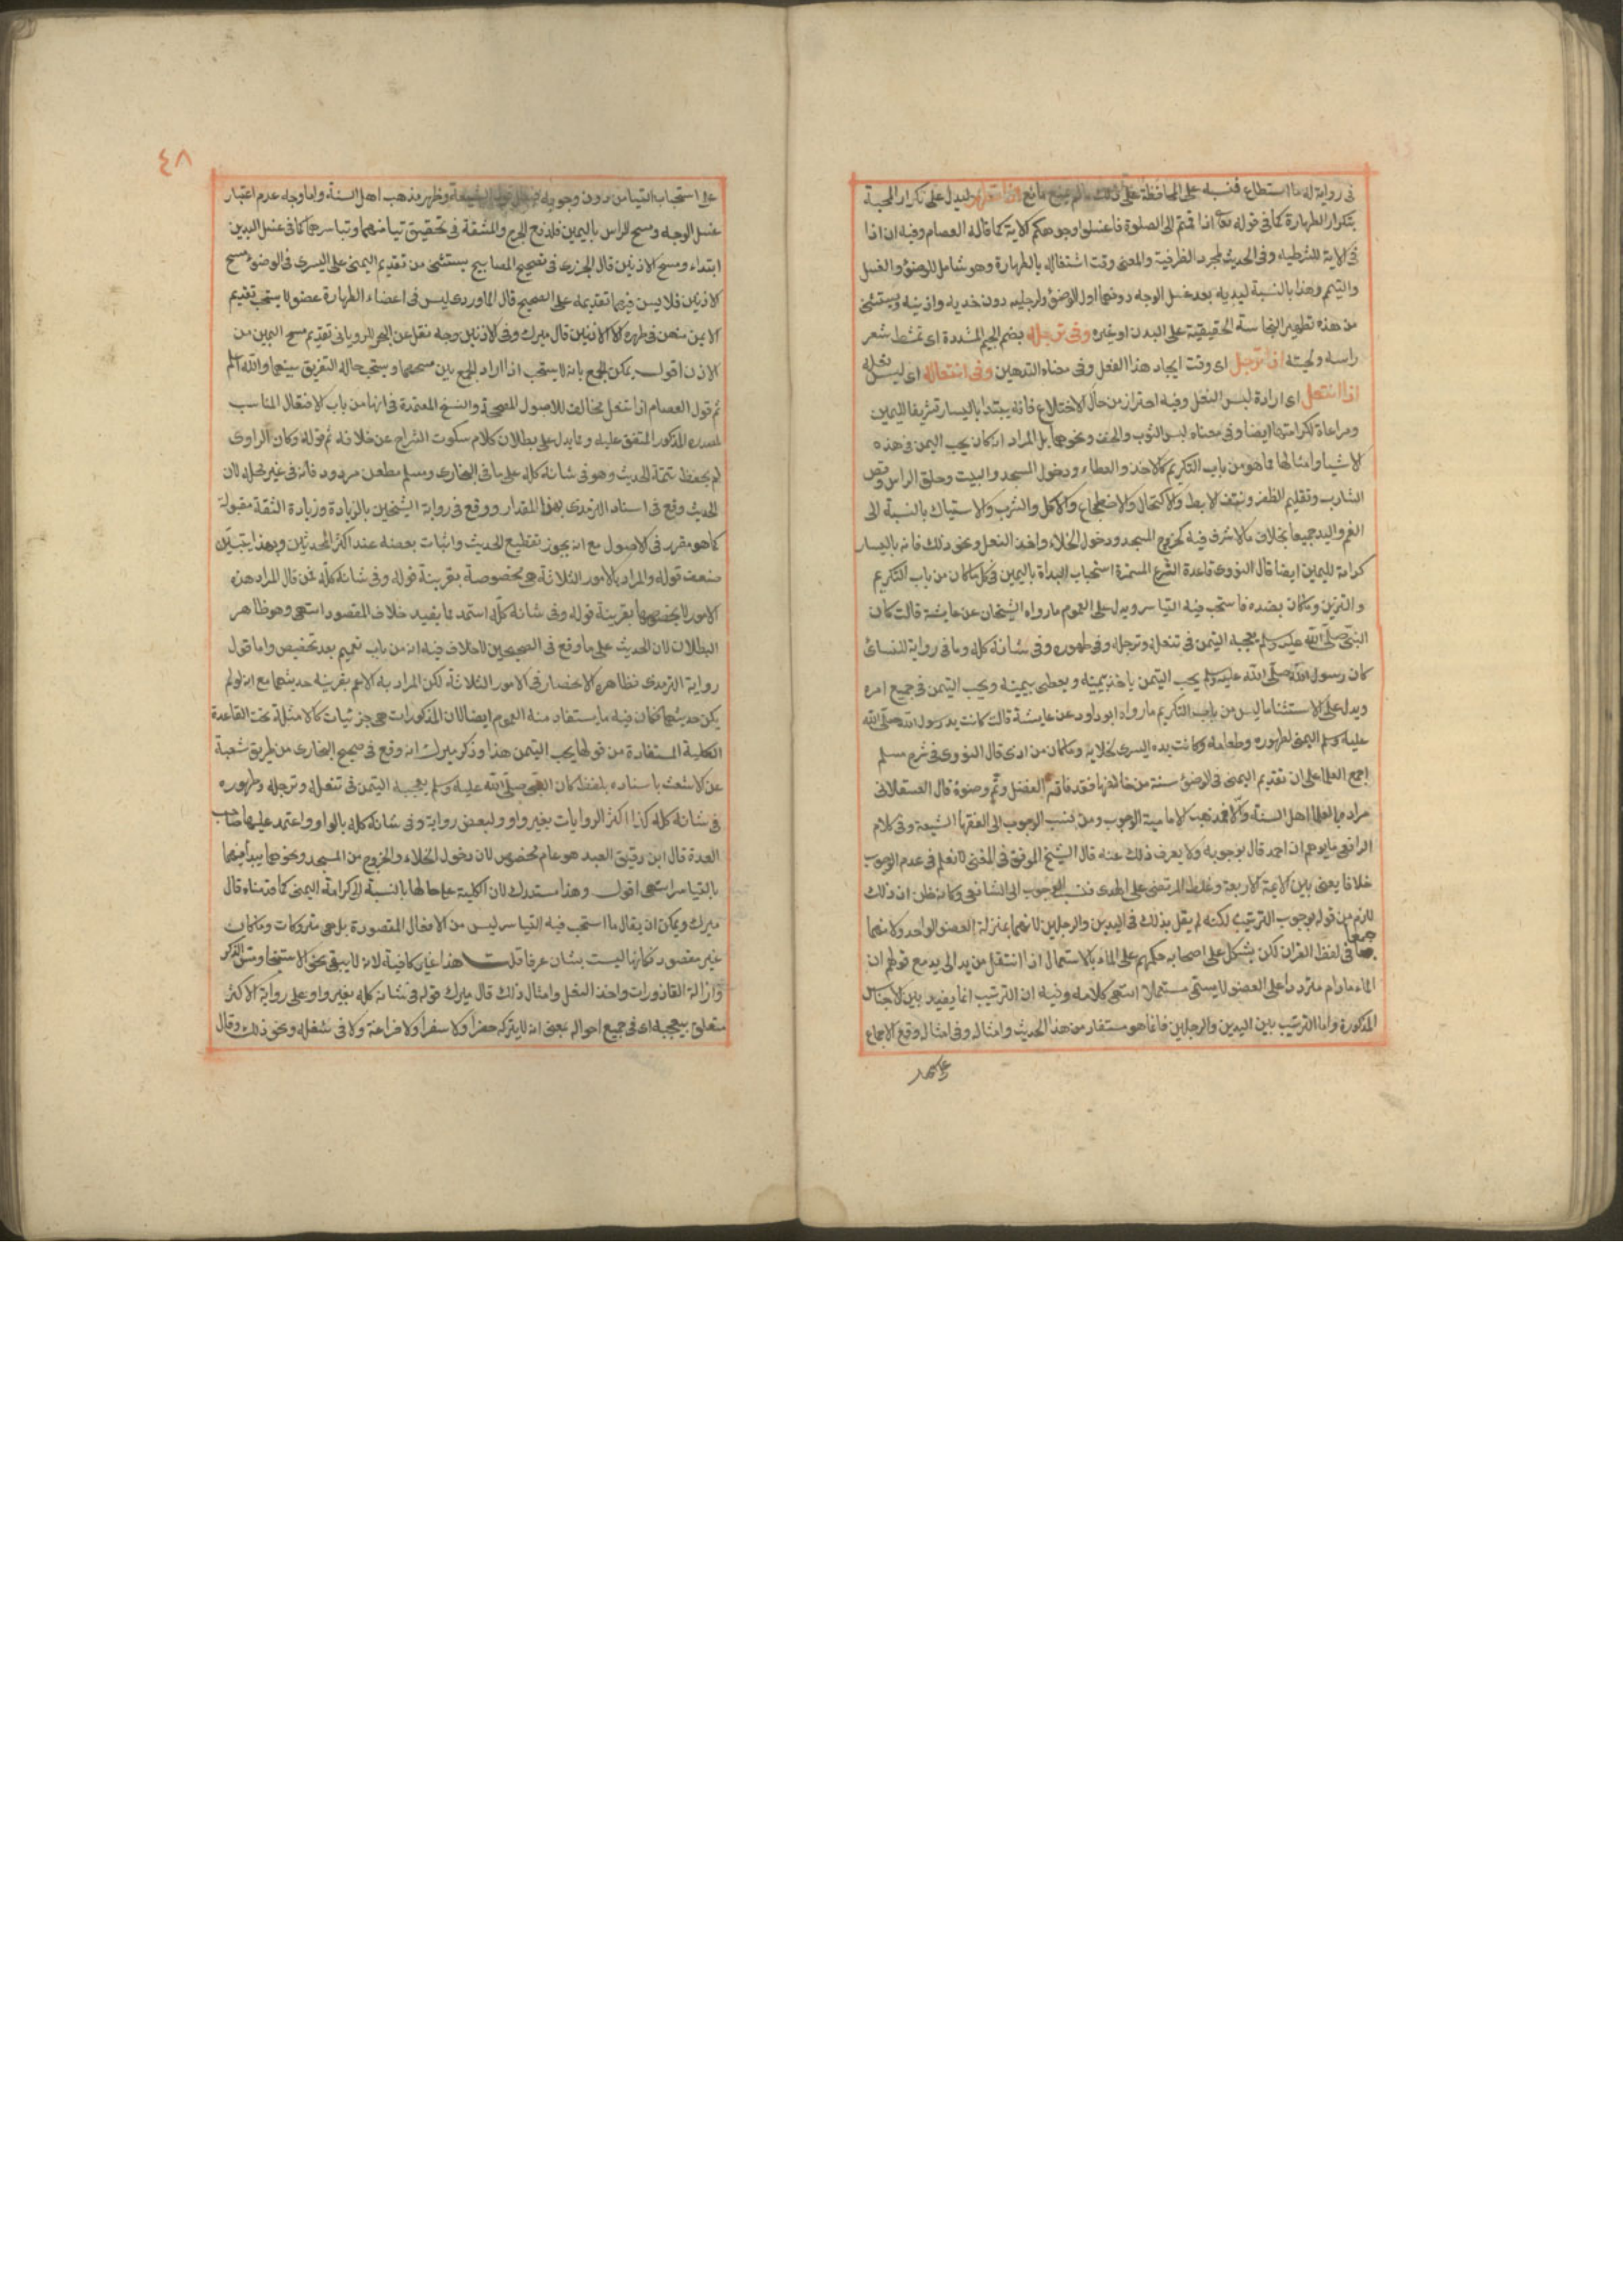 في رواية له ما استطاع فنبه على المحافظة على ذلك ما لم يمنع مانع اذا تطهر ليدل على تكرار المحبة
بتكرار الطهارة كما في قوله تعالى اذا قمتم الى الصلوة فاغسلوا وجوهكم الاية كما قاله العصام وفيه ان اذا
في الاية للشرطية وفي الحديث لمجرد الظرفية والمعنى وقت اشتغاله بالطهارة وهو شامل للوضوء والغسل
والتيمم وهذا بالنسبة ليديه بعد غسل الوجه دونهما اول الوضوء ولرجليه دون خديه واذنيه ويستثنى
من هذه تطهير النجاسة الحقيقية على البدن او غيره وفي ترجله بضم الجيم المشددة اى تمشط شعر
راسه ولحيته اذا ترجل اى وقت ايجاد هذا الفعل وفي معناه التدهين وفي انتعاله اى لبس نعله
اذا انتعل اى ارادة لبس النعل وفيه احتراز من حال الاختلاع فانه يبتدا باليسار تشريفا لليمين
ومراعاة لكرامتها ايضا وفي معناه لبس الثوب والخف ونحوهما بل المراد انه كان يحب اليمن في هذه
الاشيا وامثالها مما هو من باب التكريم كالاخذ والعطاء ودخول المسجد والبيت وحلق الراس وقص
الشارب وتقليم الظفر ونتف الابط والاكتحال والاضطجاع والاكل والشرب والاستياك بالنسبة الى
الفم واليد جميعا بخلاف ما لا شرف فيه كخروج المسجد ودخول الخلاء واخذ النعل ونحو ذلك فانه باليسار
كرامة لليمين ايضا قال النووى قاعدة الشرع المستمرة استحباب البداة باليمين في كل ما كان من باب التكريم
والتزين وما كان بضده فاستحب فيه التياسر ويدل على العموم ما رواه الشيخان عن عايشة قالت كان
النبي صلى الله عليه وسلم يعجبه التيمن في تنعله وترجله وفي طهوره وفي شانه كله وما في رواية للنسائ
كان رسول الله صلى الله عليه وسلم يحب التيمن ياخذ بيمينه ويعطى بيمينه ويحب التيمن في جميع امره
ويدل على الاستثنا ما ليس من باب التكريم ما رواه ابو داود عن عايشة قالت كانت يد رسول الله صلى الله
عليه وسلم اليمنى لطهوره وطعامه وكانت يده اليسرى لخلايه وما كان من اذى قال النووى في شرح مسلم
اجمع العلما على ان تقديم اليمنى في الوضوء سنة من خالفها فقد فاته الفضل وتم وضوءه قال العسقلانى
مراده بالعلما اهل السنة والا فمذهب الامامية الوجوب ومن نسب الوجوب الى الفقها الشيعة وفي كلام
الرافعى ما يوهم ان احمد قال بوجوبه ولا يعرف ذلك عنه قال الشيخ الموفق في المغنى لا نعلم في عدم الوجوب
خلافا يعنى بين الايمة الاربعة وغلط المرتضى علم الهدى فنسب الوجوب الى الشافعى وكانه ظن ان ذلك
لازم من قوله بوجوب الترتيب لكنه لم يقل بذلك في اليدين والرجلين لانهما بمنزلة العضو الواحد ولانهما
جمعا في لفظ القران لكن يشكل على اصحابه حكمهم على الماء بالاستعمال اذا انتقل من يد الى يد مع قولهم ان
الماء ما دام مترددا على العضو لا يسمى مستعملا انتهى كلامه وفيه ان الترتيب انما يفيد بين الاجناس
المذكورة واما الترتيب بين اليدين والرجلين فانما هو مستفاد من هذا الحديث وامثاله وفي امثاله وقع الاجماع
٤٨
على استحباب التيامن دون وجوبه وظهر مذهب اهل السنة واما وجه عدم اعتبار
غسل الوجه ومسح الراس باليمين فلدفع الحرج والمشقة في تحقيق تيامنهما وتياسرهما كما في غسل اليدين
ابتداء ومسح الاذنين قال الجزرى في تصحيح المصابيح يستثنى من تقديم اليمنى على اليسرى في الوضوء مسح
الاذنين فلا يسن فيهما تقديمه على الصحيح قال الماوردى ليس في اعضاء الطهارة عضو لا يستحب تقديم
الايمن منهن في طهره الا الاذنين قال ميرك وفي الاذنين وجه نقل عن البحر للرويانى تقديم مسح اليمين من
الاذن اقول يمكن الجمع بانه لا يستحب اذا اراد الجمع بين مسحهما ويستحب حالة التفريق بينهما والله اعلم
ثم قول العصام اذا تنعل مخالف للاصول المصححة والنسخ المعتمدة في انها من باب الافتعال المناسب
لمصدره المذكور المتفق عليه ومما يدل على بطلان كلام سكوت الشراح عن خلافه ثم قوله وكان الراوى
لم يحفظ تتمة الحديث وهو في شانه كله على ما في البخارى ومسلم مطعن مردود فانه في غير محله لان
الحديث وقع في اسناد الترمذى بهذا المقدار ووقع في رواية الشيخين بالزيادة وزيادة الثقة مقبولة
كما هو مقرر في الاصول مع انه يجوز تقطيع الحديث واثبات بعضه عند اكثر المحدثين وبهذا يتبين
ضعف قوله والمراد بالامور الثلاثة هي مخصوصة بقرينة قوله وفي شانه كله فمن قال المراد هذه
الامور لا بخصوصها بقرينة قوله وفي شانه كله استمد مما يفيد خلاف المقصود انتهى وهو ظاهر
البطلان لان الحديث على ما وقع في الصحيحين لا خلاف فيه انه من باب تعميم بعد تخصيص واما قول
رواية الترمذى فظاهره الانحصار في الامور الثلاثة لكن المراد به الاعم بقرينة حديثهما مع انه لو لم
يكن حديثهما لكان فيه ما يستفاد منه العموم ايضا لان المذكورات هي جزئيات كالامثلة تحت القاعدة
الكلية المستفادة من قولها يحب التيمن هذا وذكر ميرك انه وقع في صحيح البخارى من طريق شعبة
عن الاشعث باسناده بلفظ كان النبي صلى الله عليه وسلم يعجبه التيمن في تنعله وترجله وطهوره
في شانه كله كذا اكثر الروايات بغير واو ولبعض رواية وفي شانه كله بالواو واعتمد عليها صاحب
العمدة قال ابن دقيق العيد هو عام مخصوص لان دخول الخلاء والخروج من المسجد ونحوهما يبدأ فيهما
بالتياسر انتهى اقول وهذا مستدرك لان الكلية على حالها بالنسبة الى كرامة اليمنى كما قدمناه قال
ميرك ويمكن ان يقال ما استحب فيه التياسر ليس من الافعال المقصودة بل هي متروكات وما كان
غير مقصود فكانها ليست بشان عرفا قلت هذا غير كافية لانه لا يبقى نحو الاستنجا ومس الذكر
وازالة القاذورات واخذ النعل وامثال ذلك قال ميرك قوله في شانه كله بغير واو على رواية الاكثر
متعلق بيعجبه اى في جميع احواله بمعنى انه لا يتركه حضرا ولا سفرا ولا فراغة ولا في شغله ونحو ذلك وقال